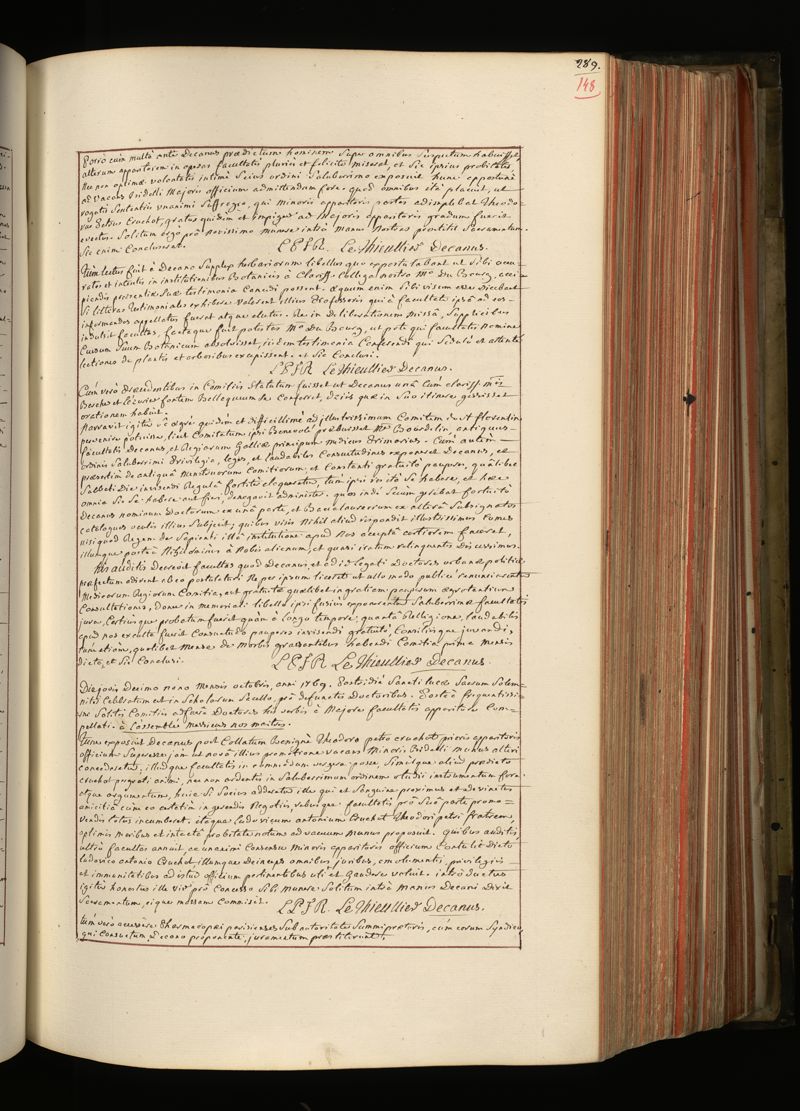 289.
148
Porro cum multa ante Decanus prædictum hominem super omnibus suspectum habuisset,
alterum apparitorem in operas facultatis pluries et feliciter miserat, et sic ipsius probitatis
nec non optimæ voluntatis intimè scius ordini saluberrimo exposuit hunc opportunè
ad vacans Bidelli Majoris officium admittendum fore. quod omnibus ità placuit, ut
rogatis sententiis unanimi suffragio, qui minoris apparitoris partes adimplebat Theodo-
rus Petrus Cruchot, gratus quidem et impiger ad Majoris apparitoris gradum fuerit
evectus. Solitum ergo pro novissimo munere intrà manus nostras præstitit sacramentum.
Sic enim Concluserat. L.P.F.R. Le Thieullier Decanus.
Tum lectus fuit à Decano supplex herbariorum libellus quo expostulabant ut sibi accu-
ratis et intentis in institutionibus Botanicis à Clariss. Collega nostro Mro Du Bourg, acci-
piendis præsentiæ suæ testimonia concedi possent. æquum enim sibi visum esse dicebant
si litteras testimoniales exhibere valerent illius Professoris qui à facultate ipsâ ad eos-
informandos appellatus fuerat atque electus. Re in deliberationem missâ, supplicibus
indulsit facultas, factaque fuit potestas Mro Du Bourg, ut pote qui facultatis nomine
Cursum suum Botanicum absolvisset, iisdem testimonia Conferendi qui sedulò et attentè
lectiones de plantis et arboribus excepissent. et sic Conclusi.
L.P.F.R. Le Thieullier Decanus.
Cum verò præcedentibus in Comitiis statutum fuisset ut Decanus unà cum clariss. mris
Bercher et Lecurier fontem Bellaqueum se conferret, de iis quæ in suo itinere gesserat
orationem habuit.
Narravit igitur se ægrè quidem et difficillimè ad illustrissimum Comitem de St florentin
pervenire potuisse, licet Comitatum ipsi benevolè præbuisset Mer Bourdelin, antiquus-
facultatis Decanus, et Regiarum Galliæ principum medicus primarius. Cum autem
ordinis saluberrimi privilegia, leges, et laudabiles Consuetudines exponeret Decanus, et
præsertim de antiquâ menstruorum Comitiorum et Constanti gratuitò pauperes, quâlibet
sabbati die invisendi regulâ fortiter eloqueretur, tum ipsi rei ità se habere, et hæc
omnia sic se habere aut fieri, denegavit administer. quos indè secum gerebat fortuitò
Decanus nominum Doctorum ex unâ parte, et Baccalaureorum ex alterâ subsignatos
catalogos oculis illius subjecit; quibus visis nihil aliud respondit illustrissimus Comes
nisi quod Regem de sapienti illâ institutione apud nos acceptâ certiorem faceret,
illumque porrò nihilominus à nobis alienum, et quasi iratum relinquentes discessimus.
His auditis decrevit facultas quod Decanus, et ad id legati Doctores urbanæ politiæ
præfectum adirent ab eo postulaturi ne per ipsum liceret ut ullo modo publicè renuncientur
Medicorum Regiorum Comitia, aut gratuitæ quælibet in gratiam pauperum ægrotantium
Consultationes, donec in memoriali libello ipsi fusius expæquerentur saluberrimæ facultatis
jura, Certius que probatum fuerit quàm à longo tempore, quantâ Religione, laudabilis
apud nos exculta fuerit Consuetudo pauperes invisendi gratuitò, Consiliisque juvandi,
tum etiam, quolibet mense de morbis grassantibus habendi Comitia primâ mensis
dieta, et sic Conclusi. L.P.F.R. Le Thieullier Decanus.
Die jovis decimo nono mensis octobris, anni 1769. Postridiè Sancti lucæ sacrum solem-
niter celebratum est in scholarum sacello, pro defunctis Doctoribus. Posteà frequentissi-
mis solitis Comitiis adfuere Doctores his verbis à Majore facultatis apparitore Com-
pellati. à l'assemblée messieurs nos maitres.
Tunc exposuit Decanus post Collatum benignè Theodoro petro cruchot prioris apparitoris
officium superesse jam ut novâ illius promotione vacans minoris Bidelli munus alteri
concederetur, illudque facultatis in commodum vergere posse, simulque aliud prædicto
cruchot pergrati animi, nec non ardentis in saluberrimum ordinem studii incitamentum fore
atque argumentum, huic si socius adderetur ille qui et sanguine proximus et advinctus
amicitiâ cum eo certatim in gerendis negotiis, rebusque facultatis pro suâ parte promo-
vendis totus incumberet. itaque ludovicum antonium Cruchot Theodori petri fratrem,
optimis moribus et intectâ probitate notum ad vacuum munus proposuit. quibus auditis
ultrò facultas annuit, ac unanimi Consensu minoris apparitoris officium Contulit dicto
ludovico antonio Cruchot, illumque deinceps omnibus juribus, emolumentis, privilegiis
et immunitatibus ad istud officium pertinentibus uti et gaudere voluit. introductus
igitur honestus ille vir pro Concesso sibi munere solitum intrà manus Decani dixit
Sacramentum, eique massam commisit. L.P.F.R. Le Thieullier Decanus.
tum verò accessere Pharmacopæi parisienses sub autoritate summi prætoris, cum eorum syndico,
qui Consuetum Decano proponente, juramentum præstiterunt.